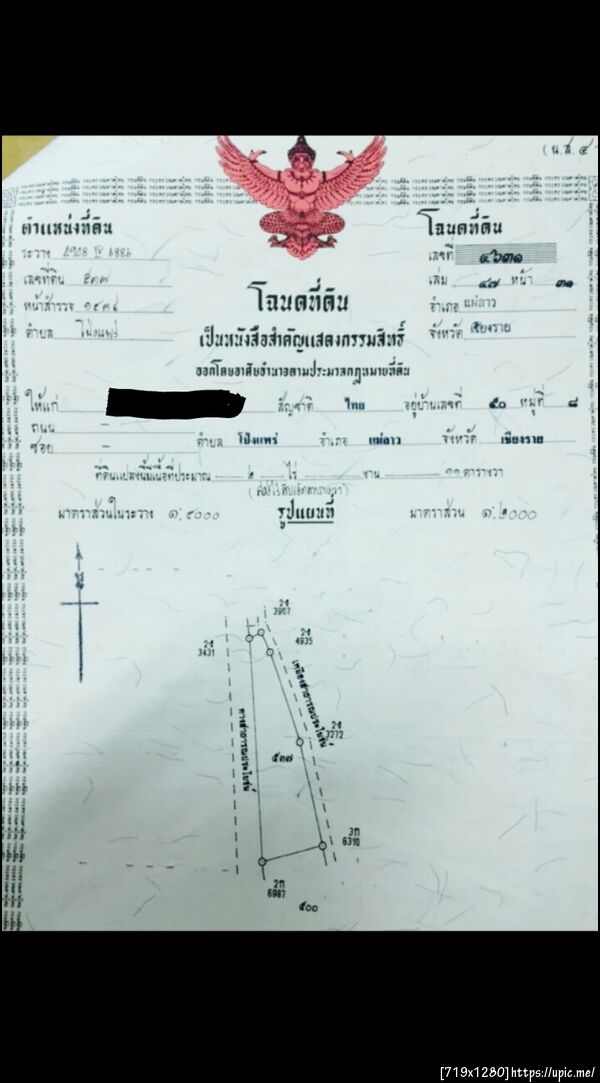 (น.ส. ๔
ตำแหน่งที่ดิน
โฉนดที่ดิน
ระวาง
เลขที่ ๔๖๓๑
เลขที่ดิน ๕๓๗
เล่ม ๔๗ หน้า ๓๑
หน้าสำรวจ ๑๕๓๔
อำเภอ แม่ลาว
ตำบล โป่งแพร่
จังหวัด เชียงราย
โฉนดที่ดิน
เป็นหนังสือสำคัญแสดงกรรมสิทธิ์
ออกโดยอาศัยอำนาจตามประมวลกฎหมายที่ดิน
ให้แก่ สัญชาติ ไทย อยู่บ้านเลขที่ ๕๐ หมู่ที่ ๘
ถนน -
ซอย - ตำบล โป่งแพร่ อำเภอ แม่ลาว จังหวัด เชียงราย
ที่ดินแปลงนี้มีเนื้อที่ประมาณ ๒ ไร่ - งาน ๑๑ ตารางวา
(สองไร่สิบเอ็ดตารางวา)
มาตราส่วนในระวาง ๑:๔๐๐๐ รูปแผนที่ มาตราส่วน ๑:๒๐๐๐
2ช 3907
2ช 3431
2ช 4935
เหมืองสาธารณประโยชน์
ทางสาธารณประโยชน์
2ช 3272
๕๓๗
3ก 6310
2ก 6987
๕๐๐
[719x1280]https://upic.me/